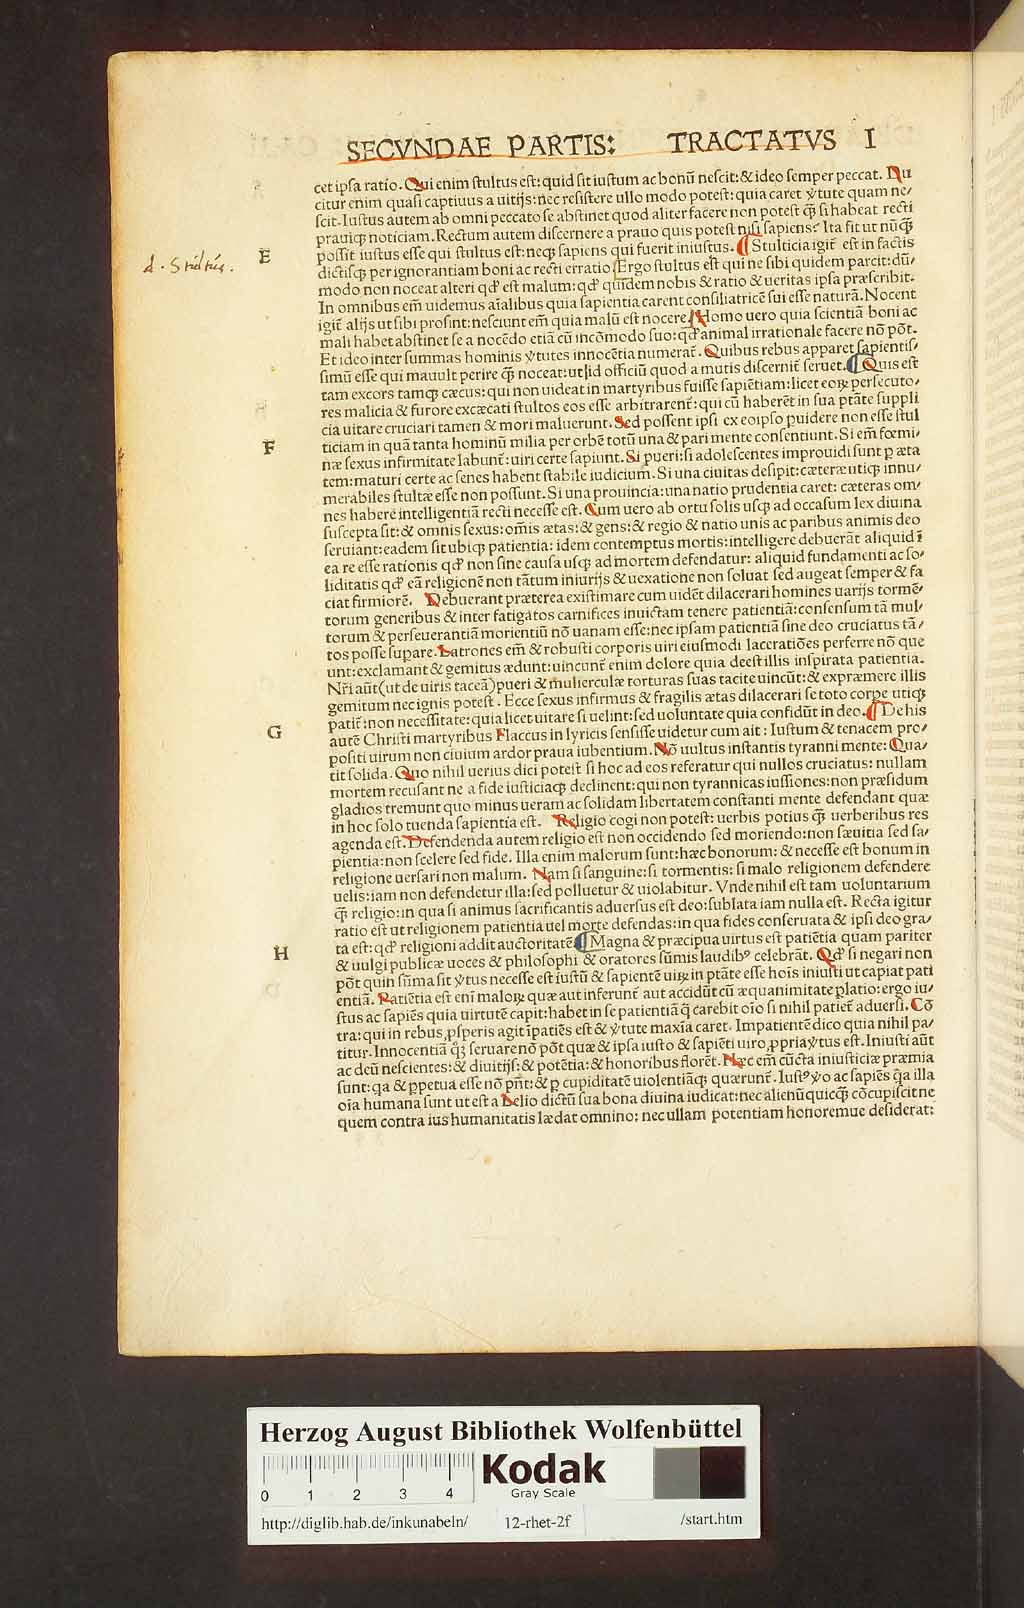 SECVNDAE PARTIS: TRACTATVS I
cet ipſa ratio. Qui enim ſtultus eſt: quid ſit iuſtum ac bonū neſcit: & ideo ſemper peccat. Du
citur enim quaſi captiuus a uitijs: nec reſiſtere ullo modo poteſt: quia caret ẏtute quam ne/
ſcit. Iuſtus autem ab omni peccato ſe abſtinet quod aliter facere non poteſt q̄ ſi habeat recti
prauiq; noticiam. Rectum autem diſcernere a prauo quis poteſt niſi ſapiens? Ita fit ut nūq̄
E poſſit iuſtus eſſe qui ſtultus eſt: neq; ſapiens qui fuerit iniuſtus. ¶ Stulticia igit̄ eſt in factis
d. Stultus.
dictiſq; per ignorantiam boni ac recti erratio. Ergo ſtultus eſt qui ne ſibi quidem parcit: dū/
modo non noceat alteri qd' eſt malum: qd' quidem nobis & ratio & ueritas ipſa præſcribit.
In omnibus em̄ uidemus aīalibus quia ſapientia carent conſiliatricē ſui eſſe naturā. Nocent
igit̄ alijs ut ſibi proſint: neſciunt em̄ quia malū eſt nocere. Homo uero quia ſcientiā boni ac
mali habet abſtinet ſe a nocēdo etiā cū incōmodo ſuo: qd' animal irrationale facere nō pōt.
Et ideo inter ſummas hominis ẏtutes innocētia numerat̄. Quibus rebus apparet ſapientiſ/
ſimū eſſe qui mauult perire q̄ noceat: ut id officiū quod a mutis diſcernit̄ ſeruet. ¶ Quis eſt
tam excors tamq; cæcus: qui non uideat in martyribus fuiſſe ſapiētiam: licet eoꝝ perſecuto/
res malicia & furore excæcati ſtultos eos eſſe arbitrarent̄: qui cū haberēt in ſua ptāte ſuppli
cia uitare cruciari tamen & mori maluerunt. Sed poſſent ipſi ex eo ipſo puidere non eſſe ſtul
F ticiam in quā tanta hominū milia per orbē totū una & pari mente conſentiunt. Si em̄ fœmi/
næ ſexus infirmitate labunt̄: uiri certe ſapiunt. Si pueri: ſi adoleſcentes improuidi ſunt p æta
tem: maturi certe ac ſenes habent ſtabile iudicium. Si una ciuitas deſipit: cæteræ utiq; innu/
merabiles ſtultæ eſſe non poſſunt. Si una prouincia: una natio prudentia caret: cæteras om/
nes habere intelligentiā recti neceſſe eſt. Cum uero ab ortu ſolis uſq; ad occaſum lex diuina
ſuſcepta ſit: & omnis ſexus: om̄is ætas: & gens: & regio & natio unis ac paribus animis deo
ſeruiant: eadem ſit ubiq; patientia: idem contemptus mortis: intelligere debuerāt aliquid ī
ea re eſſe rationis qd' non ſine cauſa uſq; ad mortem defendatur: aliquid fundamenti ac ſo/
liditatis qd' eā religionē non tātum iniurijs & uexatione non ſoluat ſed augeat ſemper & fa
ciat firmiorē. Debuerant præterea exiſtimare cum uidēt dilacerari homines uarijs tormē/
torum generibus & inter fatigatos carnifices inuictam tenere patientiā: conſenſum tā mul/
torum & perſeuerantiā morientiū nō uanam eſſe: nec ipſam patientiā ſine deo cruciatus tā/
tos poſſe ſupare. Latrones em̄ & robuſti corporis uiri eiuſmodi laceratiōes perferre nō que
unt: exclamant & gemitus ædunt: uincunt̄ enim dolore quia deeſt illis inſpirata patientia.
Nr̄i aūt (ut de uiris taceā) pueri & mulierculæ torturas ſuas tacite uincūt: & expræmere illis
gemitum nec ignis poteſt. Ecce ſexus infirmus & fragilis ætas dilacerari ſe toto corpe utiq;
patit̄: non neceſſitate: quia licet uitare ſi uelint: ſed uoluntate quia confidūt in deo. ¶ De his
G autē Chriſti martyribus Flaccus in lyricis ſenſiſſe uidetur cum ait: Iuſtum & tenacem pro/
poſiti uirum non ciuium ardor praua iubentium. Nō uultus inſtantis tyranni mente: Qua/
tit ſolida. Quo nihil uerius dici poteſt ſi hoc ad eos referatur qui nullos cruciatus: nullam
mortem recuſant ne a fide iuſticiaq; declinent: qui non tyrannicas iuſſiones: non præſidum
gladios tremunt quo minus ueram ac ſolidam libertatem conſtanti mente defendant quæ
in hoc ſolo tuenda ſapientia eſt. Religio cogi non poteſt: uerbis potius q̄ uerberibus res
agenda eſt. Defendenda autem religio eſt non occidendo ſed moriendo: non ſæuitia ſed ſa/
pientia: non ſcelere ſed fide. Illa enim malorum ſunt: hæc bonorum: & neceſſe eſt bonum in
religione uerſari non malum. Nam ſi ſanguine: ſi tormentis: ſi malo religionem defendere
uelis: iam non defendetur illa: ſed polluetur & uiolabitur. Vnde nihil eſt tam uoluntarium
q̄ religio: in qua ſi animus ſacrificantis aduerſus eſt deo: ſublata iam nulla eſt. Recta igitur
ratio eſt ut religionem patientia uel morte defendas: in qua fides conſeruata & ipſi deo gra/
H ta eſt: qd' religioni addit auctoritatē ¶ Magna & præcipua uirtus eſt patiētia quam pariter
& uulgi publicæ uoces & philoſophi & oratores ſūmis laudibꝰ celebrāt. Qd' ſi negari non
pōt quin ſūma ſit ẏtus neceſſe eſt iuſtū & ſapientē uiꝝ in ptāte eſſe hoīs iniuſti ut capiat pati
entiā. Patiētia eſt enī maloꝝ quæ aut inferunt̄ aut accidūt cū æquanimitate platio: ergo iu/
ſtus ac ſapiēs quia uirtutē capit: habet in ſe patientiā q̄ carebit oīo ſi nihil patiet̄ aduerſi. Cō
tra: qui in rebus pſperis agit īpatiēs eſt & ẏtute maxīa caret. Impatientē dico quia nihil pa/
titur. Innocentiā q̄ꝫ ſeruare nō pōt quæ & ipſa iuſto & ſapiēti uiro ppria ẏtus eſt. Iniuſti aūt
ac deū neſcientes: & diuitijs: & potētia: & honoribus florēt. Hæc em̄ cūcta iniuſticiæ præmia
ſunt: qa & ꝑpetua eſſe nō pn̄t: & ꝑ cupiditatē uiolentiāq; quærunt̄. Iuſtꝰ ẏo ac ſapiēs q̄a illa
oīa humana ſunt ut eſt a Lelio dictū ſua bona diuina iudicat: nec alienū quicq̄ cōcupiſcit ne
quem contra ius humanitatis lædat omnino: nec ullam potentiam honoremue deſiderat:
Herzog August Bibliothek Wolfenbüttel
0 1 2 3 4
Kodak
Gray Scale
http://diglib.hab.de/inkunabeln/ 12-rhet-2f /start.htm